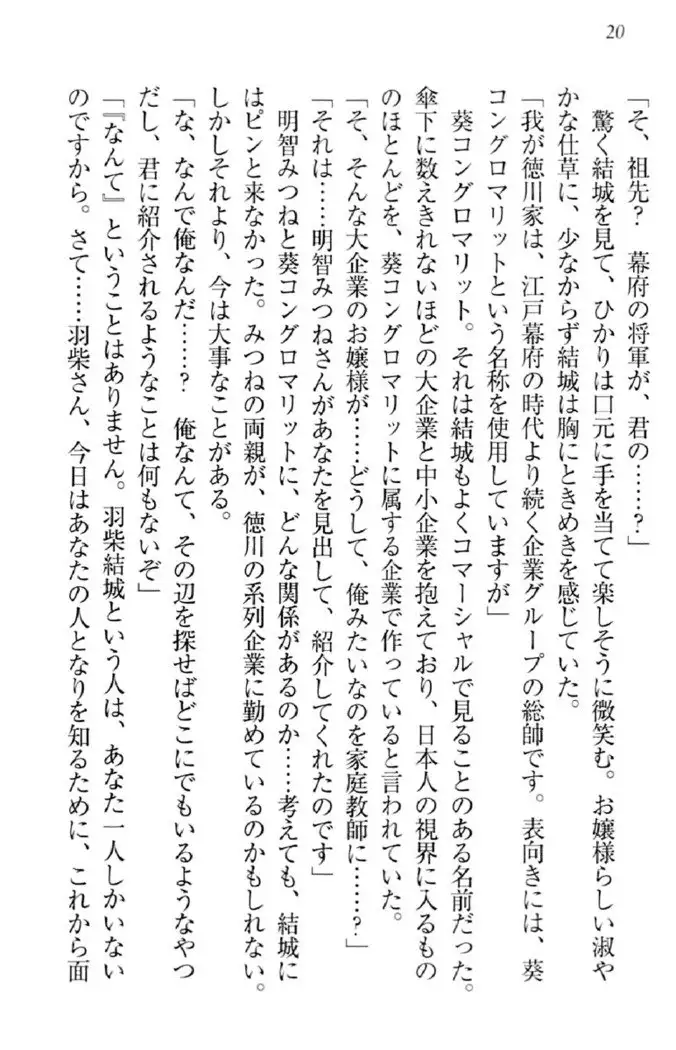 20
「そ、祖先？　幕府の将軍が、君の……？」
　驚く結城を見て、ひかりは口元に手を当てて楽しそうに微笑む。お嬢様らしい淑や
かな仕草に、少なからず結城は胸にときめきを感じていた。
「我が徳川家は、江戸幕府の時代より続く企業グループの総帥です。表向きには、葵
コングロマリットという名称を使用していますが」
　葵コングロマリット。それは結城もよくコマーシャルで見ることのある名前だった。
傘下に数えきれないほどの大企業と中小企業を抱えており、日本人の視界に入るもの
のほとんどを、葵コングロマリットに属する企業で作っていると言われていた。
「そ、そんな大企業のお嬢様が……どうして、俺みたいなのを家庭教師に……？」
「それは……明智みつねさんがあなたを見出して、紹介してくれたのです」
　明智みつねと葵コングロマリットに、どんな関係があるのか……考えても、結城に
はピンと来なかった。みつねの両親が、徳川の系列企業に勤めているのかもしれない。
しかしそれより、今は大事なことがある。
「な、なんで俺なんだ……？　俺なんて、その辺を探せばどこにでもいるようなやつ
だし、君に紹介されるようなことは何もないぞ」
「『なんて』ということはありません。羽柴結城という人は、あなた一人しかいない
のですから。さて……羽柴さん、今日はあなたの人となりを知るために、これから面